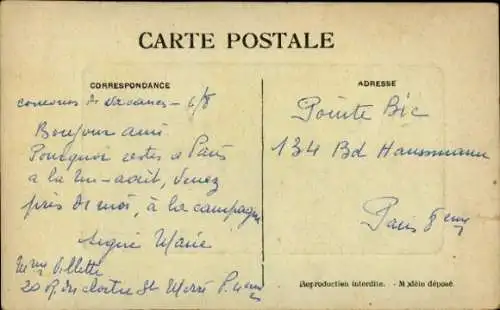 CARTE POSTALE
CORRESPONDANCE
concours de vacances - 6/8
Bonjour ami
Pourquoi restes a Paris
a la mi-août, venez
près de moi, à la campagne
signé Marie
Mme Villette
20 r. du cloître St Merri P. 4em
ADRESSE
Pointe Bic
134 Bd Haussmann
Paris 8em
Reproduction interdite. - Modèle déposé.